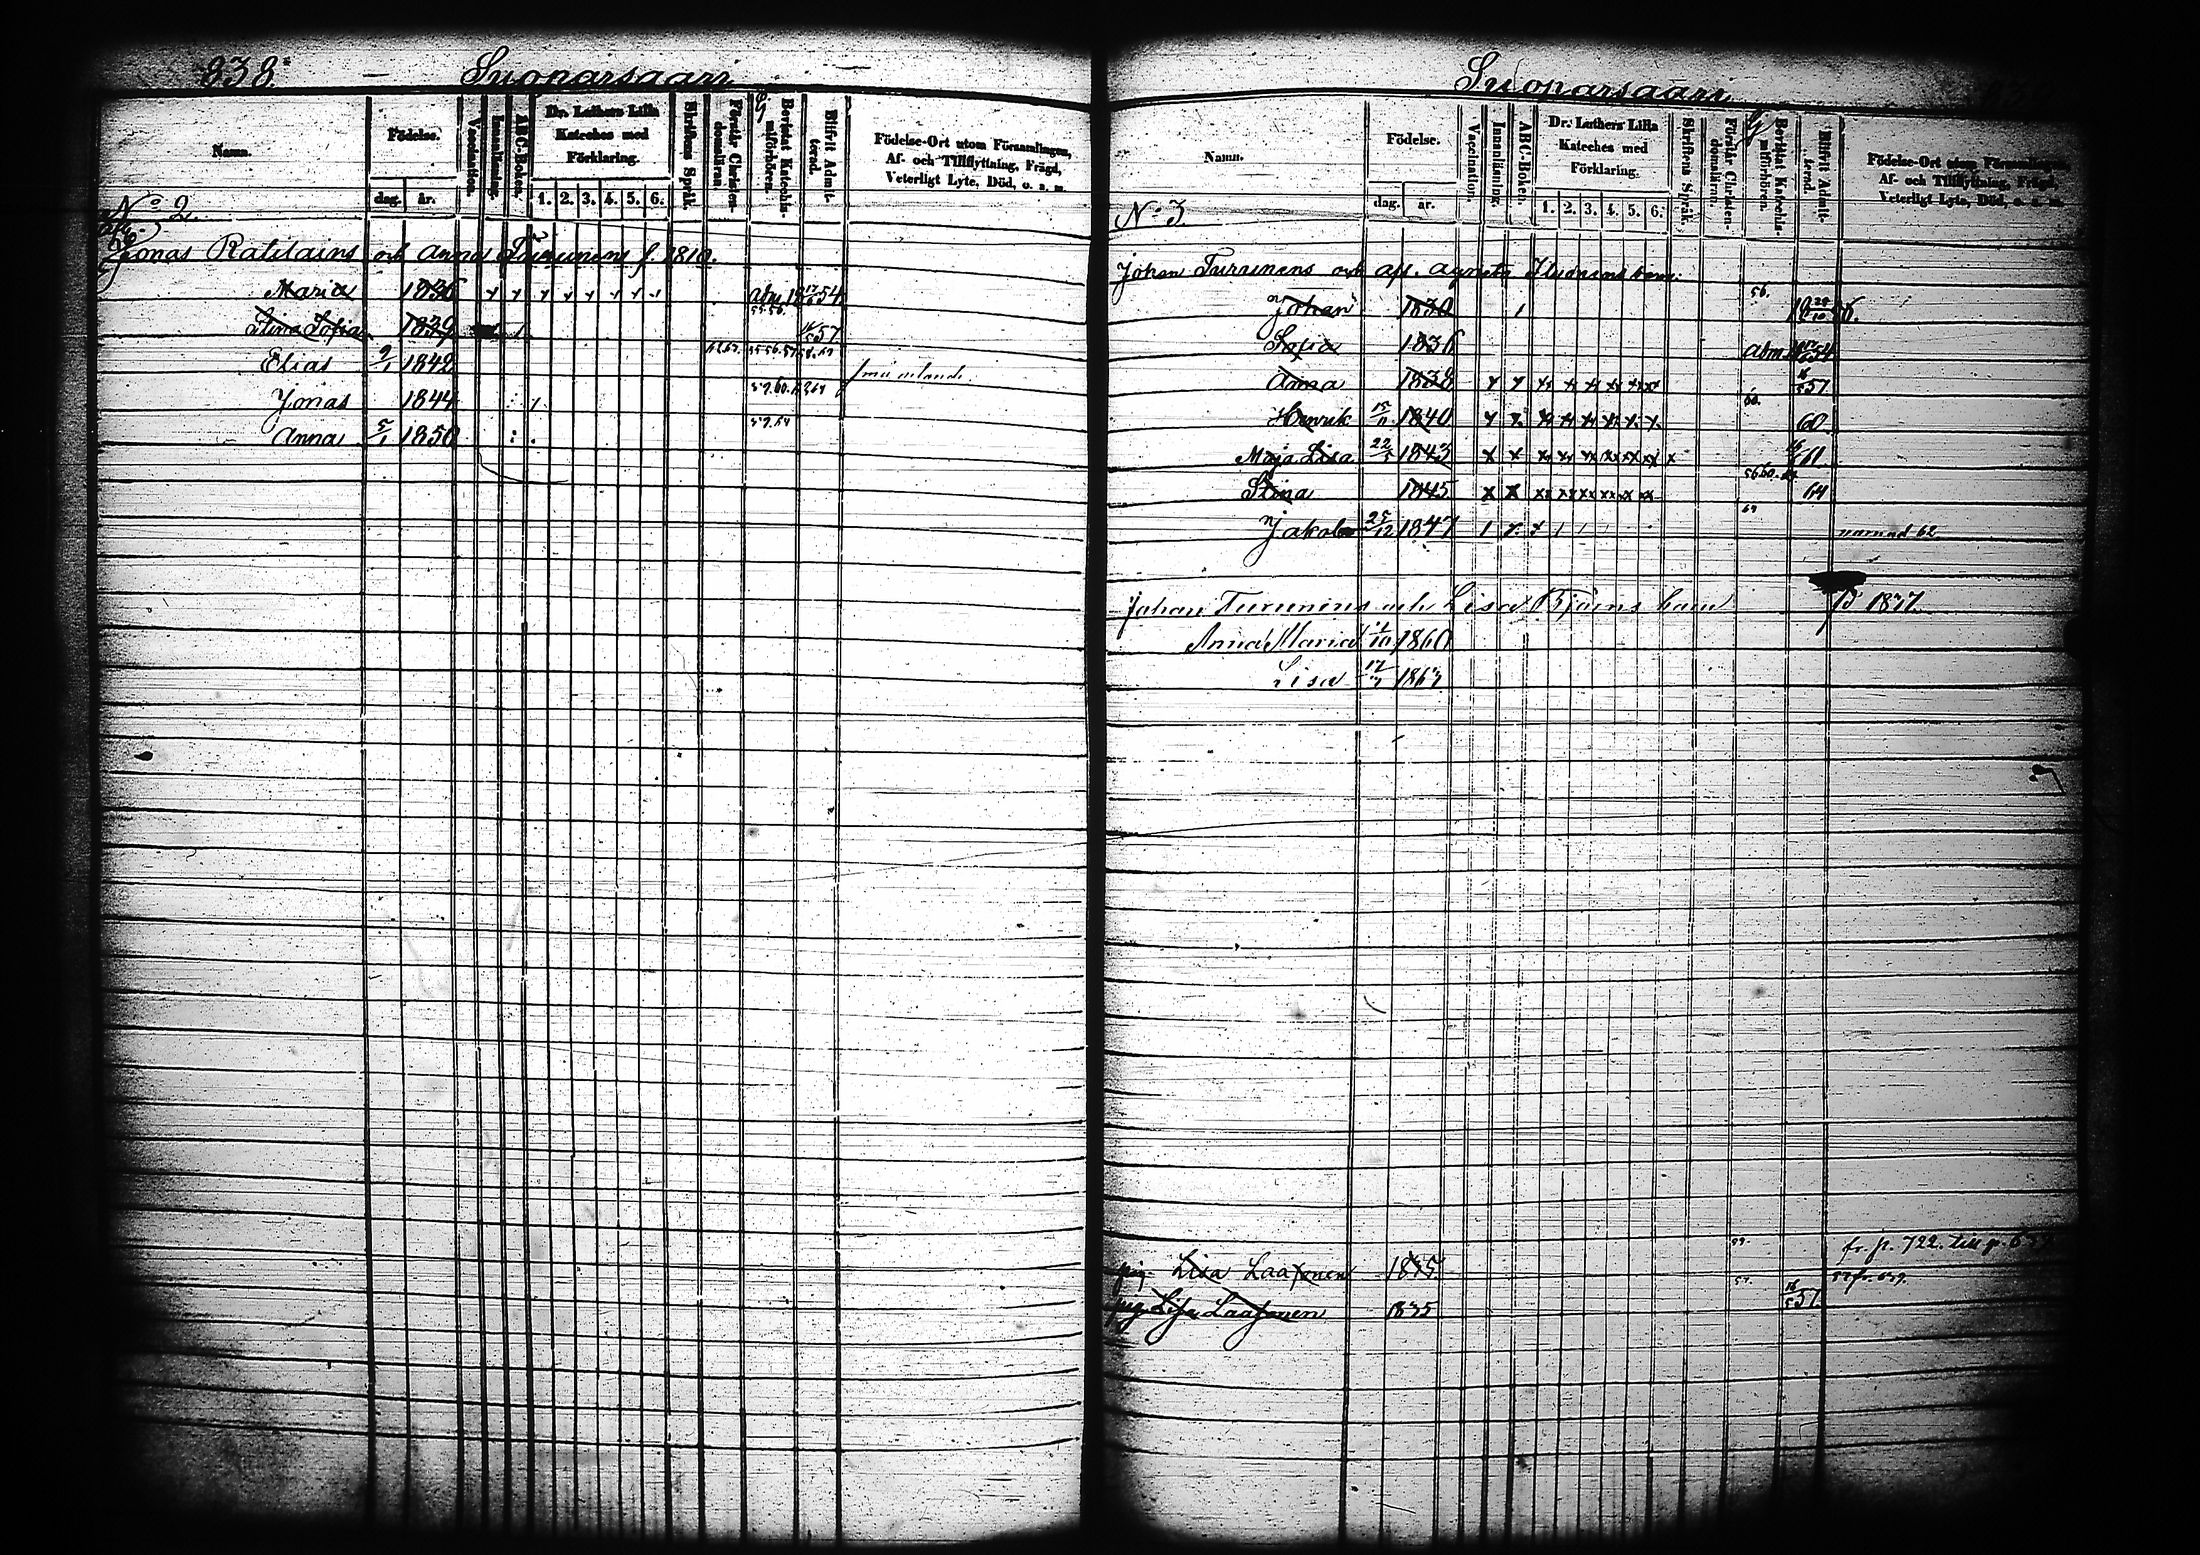 838.
Suoparsaari
Namn.
Födelse.
dag.
år.
Vaccination.
Innanläsning.
ABC-Boken.
Dr. Luthers Lilla
Kateches med
Förklaring.
1. 2. 3. 4. 5. 6.
Skriftens Språk.
Förstår Christen-
domsläran.
Bevistat Katechis-
miförhören.
Blifvit Admit-
terad.
Födelse-Ort utom Församlingen,
Af- och Tillflyttning, Frägd,
Veterligt Lyte, Död, o. s. m.
No 2.
Jonas och Anna Turunens f. 1810.
Maria 1836 54
Stina Sofia 1839 57
Elias 2/1 1842
Jonas 1844
Anna 5/1 1850
Suoparsaari
Namn.
Födelse.
dag.
år.
Vaccination.
Innanläsning.
ABC-Boken.
Dr. Luthers Lilla
Kateches med
Förklaring.
1. 2. 3. 4. 5. 6.
Skriftens Språk.
Förstår Christen-
domsläran.
Bevistat Katechis-
miförhören.
Blifvit Admit-
terad.
Födelse-Ort utom Församlingen,
Af- och Tillflyttning, Frägd,
Veterligt Lyte, Död, o. s. m.
No 3.
Johan Turunens och afl. Agneta barn.
Johan 1830 56.
Sofia 1836 54
Anna 1838 57
Henrik 1840 60
Maja Lisa 22/5 1843 61
Stina 1845 64
Jakob 25/12 1847
Johan Turunens och Lisa Björns barn 1877
Anna Maria 1860
Lisa 1863
pig. Lisa Laaxonen 1835 fr. p. 722. till p.
pig. Lisa Laaxonen 1835 16/5 57